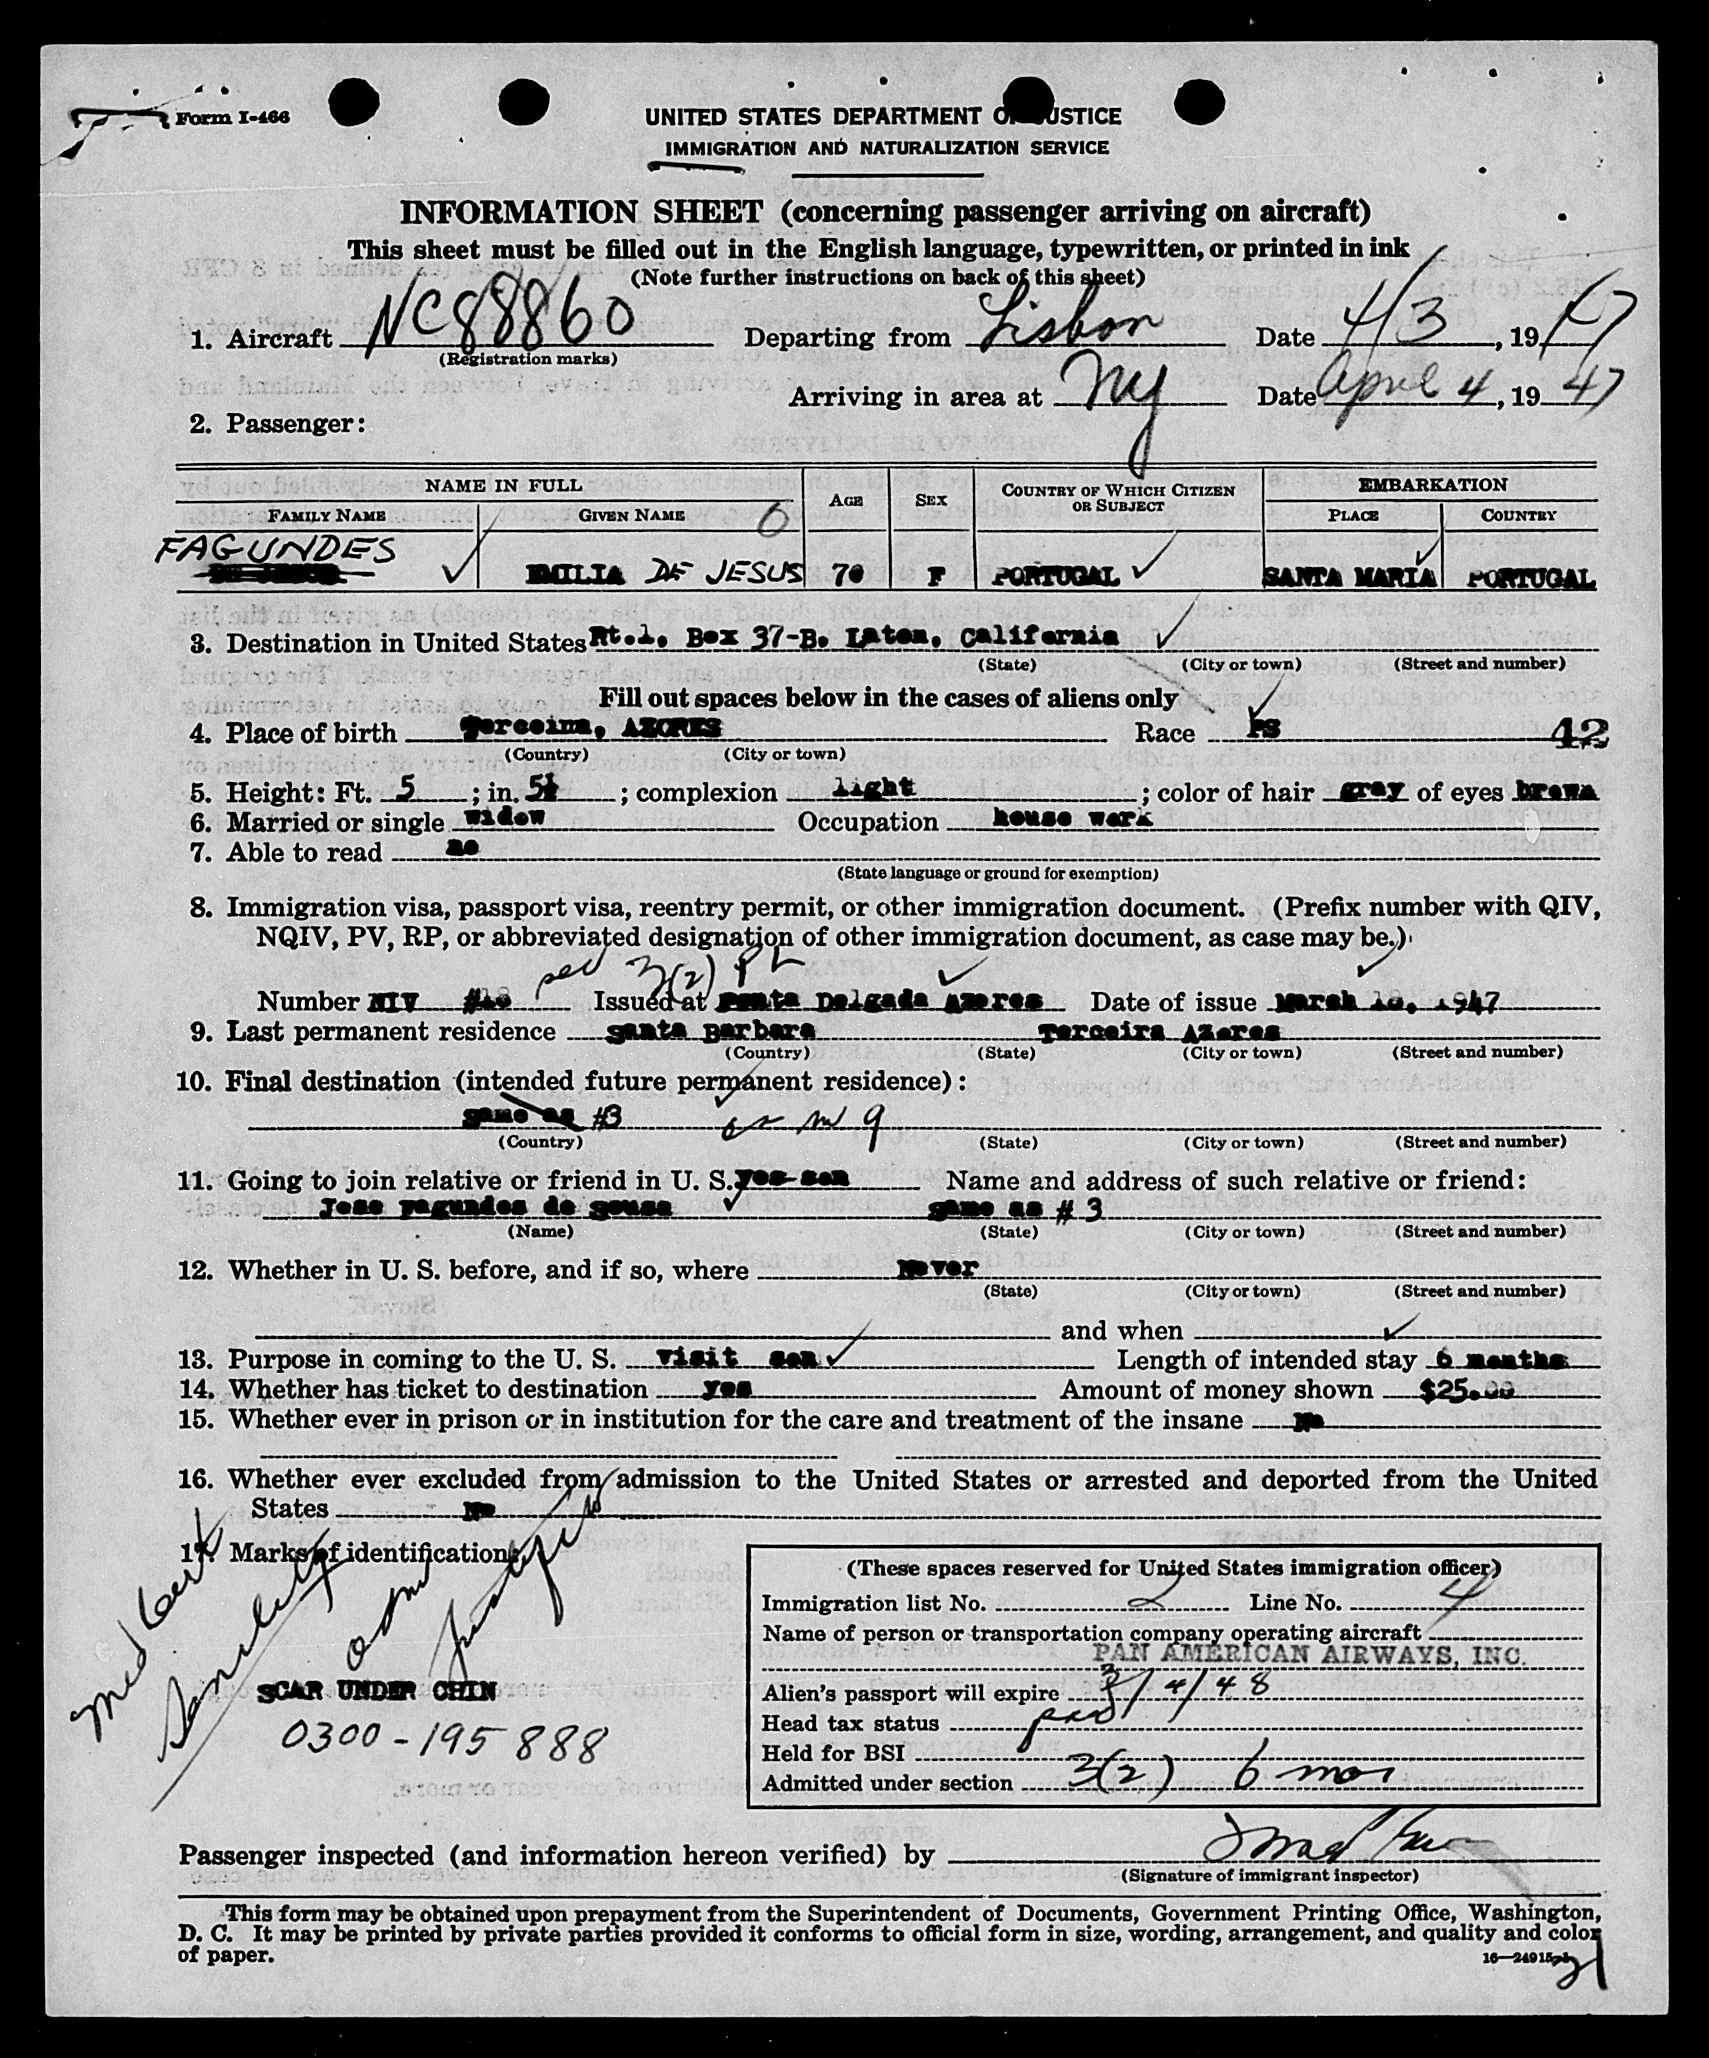 Form I-466
UNITED STATES DEPARTMENT OF JUSTICE
IMMIGRATION AND NATURALIZATION SERVICE
INFORMATION SHEET (concerning passenger arriving on aircraft)
This sheet must be filled out in the English language, typewritten, or printed in ink
(Note further instructions on back of this sheet)
1. Aircraft NC88860 Departing from Lisbon Date 4/3, 1947
(Registration marks)
Arriving in area at NY Date April 4, 1947
2. Passenger:
NAME IN FULL AGE SEX COUNTRY OF WHICH CITIZEN OR SUBJECT EMBARKATION
FAMILY NAME GIVEN NAME PLACE COUNTRY
FAGUNDES
EMILIA DE JESUS 70 F PORTUGAL SANTA MARIA PORTUGAL
3. Destination in United States Rt.1, Box 37-B. Laton, California
(State) (City or town) (Street and number)
Fill out spaces below in the cases of aliens only
4. Place of birth Terceira, AZORES Race PS 42
(Country) (City or town)
5. Height: Ft. 5; in. 5½; complexion light; color of hair gray of eyes brown
6. Married or single widow Occupation house work
7. Able to read no
(State language or ground for exemption)
8. Immigration visa, passport visa, reentry permit, or other immigration document. (Prefix number with QIV,
NQIV, PV, RP, or abbreviated designation of other immigration document, as case may be.)
3(2) PL
Number NIV #18 Issued at Ponta Delgada Azores Date of issue March 18, 1947
9. Last permanent residence Santa Barbara Terceira Azores
(Country) (State) (City or town) (Street and number)
10. Final destination (intended future permanent residence):
same as #3 as in 9
(Country) (State) (City or town) (Street and number)
11. Going to join relative or friend in U. S. yes-son Name and address of such relative or friend:
Jose Fagundes de Sousa same as # 3
(Name) (State) (City or town) (Street and number)
12. Whether in U. S. before, and if so, where Never
(State) (City or town) (Street and number)
and when
13. Purpose in coming to the U. S. Visit son Length of intended stay 6 months
14. Whether has ticket to destination yes Amount of money shown $25.00
15. Whether ever in prison or in institution for the care and treatment of the insane No
16. Whether ever excluded from admission to the United States or arrested and deported from the United
States No
17. Marks of identification:
Med Cert
Senility
SCAR UNDER CHIN
0300-195888
(These spaces reserved for United States immigration officer)
Immigration list No. 2 Line No. 4
Name of person or transportation company operating aircraft
PAN AMERICAN AIRWAYS, INC.
Alien's passport will expire 3/4/48
Head tax status
Held for BSI
Admitted under section 3(2) 6 mos
Passenger inspected (and information hereon verified) by
(Signature of immigrant inspector)
This form may be obtained upon prepayment from the Superintendent of Documents, Government Printing Office, Washington,
D. C. It may be printed by private parties provided it conforms to official form in size, wording, arrangement, and quality and color
of paper.
16—24915-1